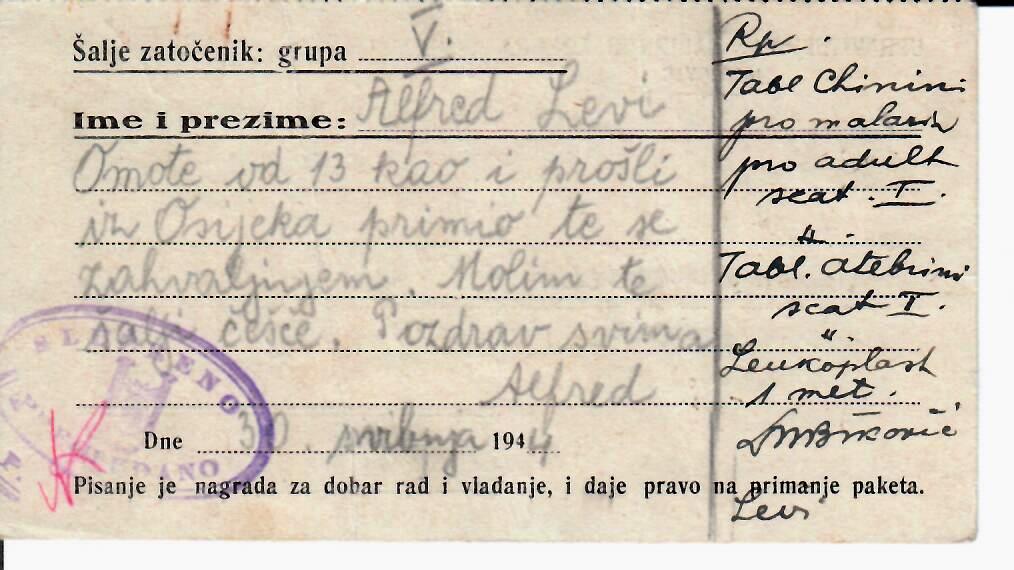 Šalje zatočenik: grupa V.
Ime i prezime: Alfred Levi
Omote od 13 kao i prošli
iz Osijeka primio te se
zahvaljujem. Molim te
šalji češće. Pozdrav svima
Alfred
Dne 30. svibnja 1944
Pisanje je nagrada za dobar rad i vladanje, i daje pravo na primanje paketa.
Rp.
Tabl Chinini
pro malaria
pro adult
scat. I.
".
Tabl. atebrini
scat I.
".
Leukoplast
1 met.
Levi
SLUŽBENO